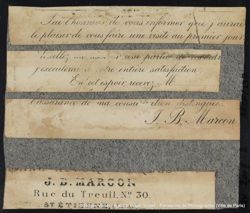 J'ai l'honneur de vous informer que j'aurai
le plaisir de vous faire une visite au premier jour
Veuillez me
j'exécuterai à votre entière satisfaction
En cet espoir recevez M
l'assurance de ma considération distinguée
J. B. Marcon
J. B. MARCON
Rue du Treuil, No 30.
ST ÉTIENNE,